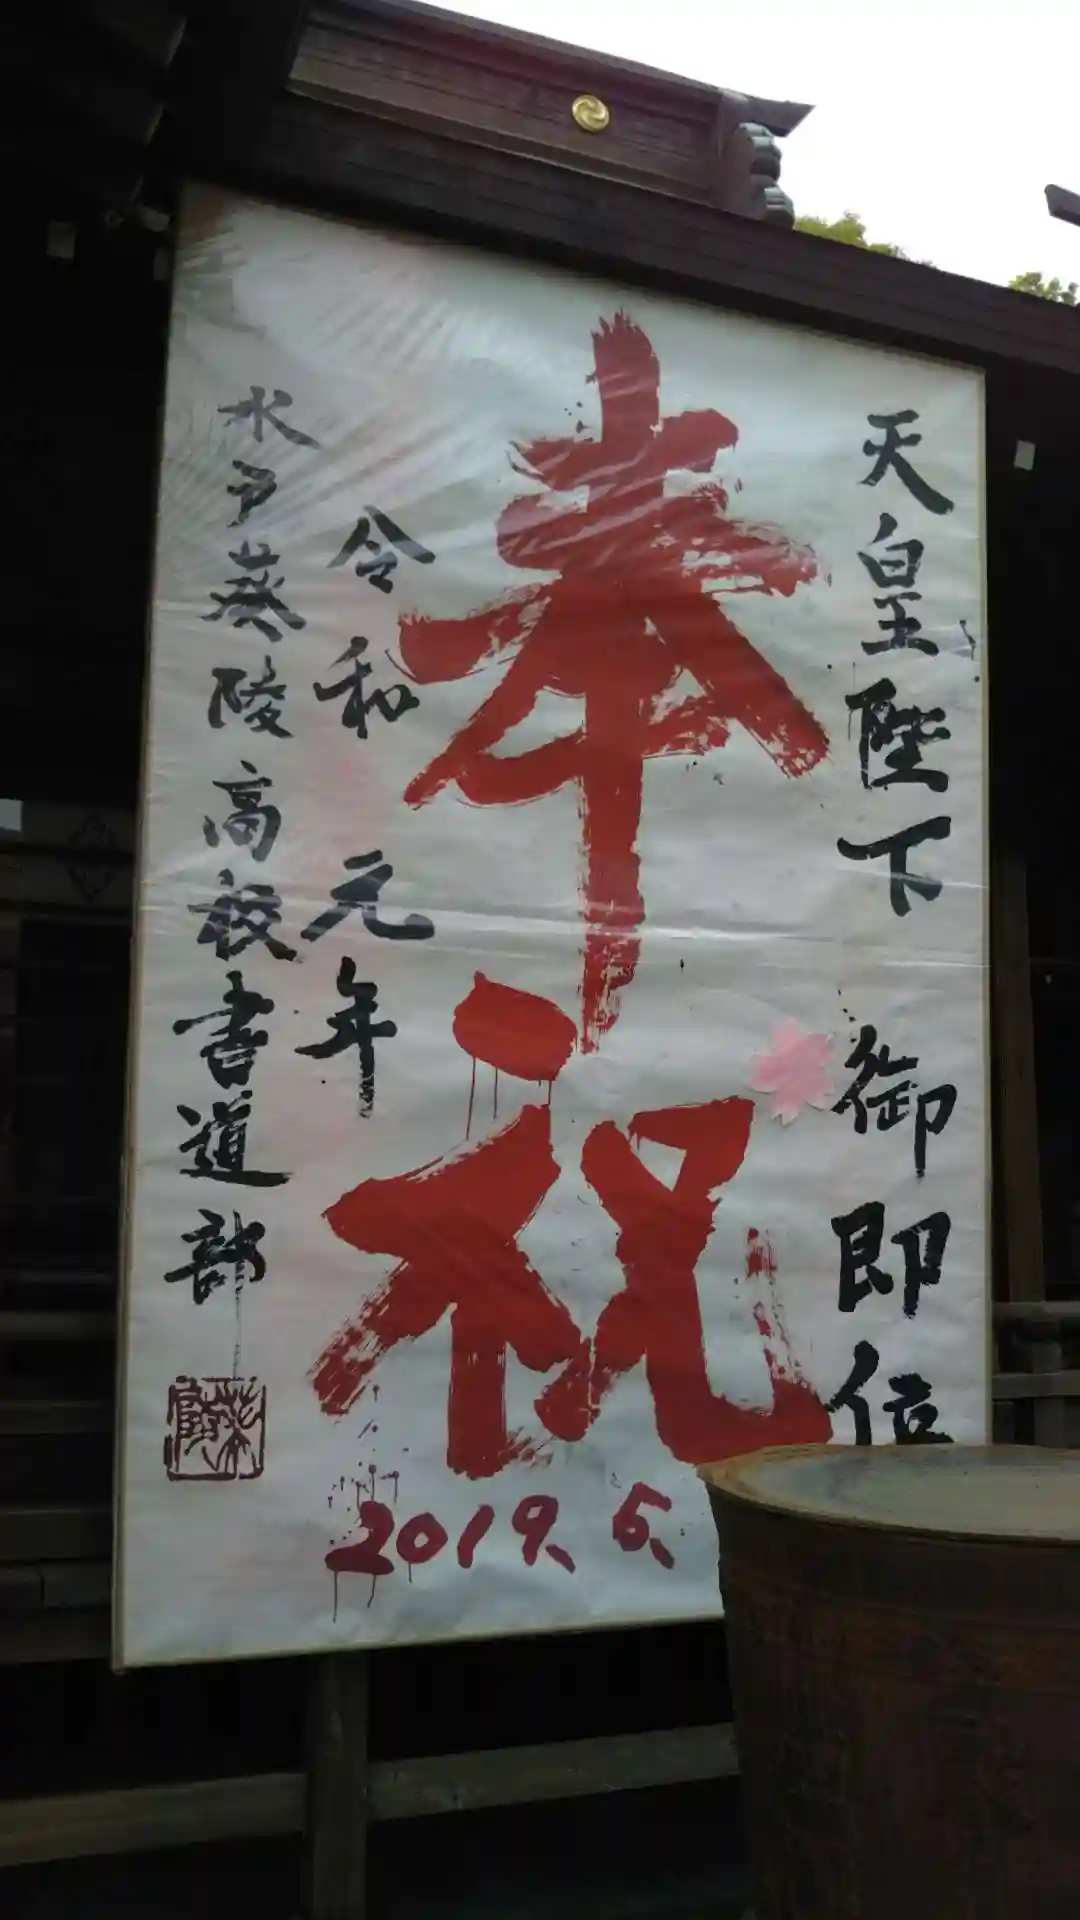 天皇陛下 御即位
奉祝
令和元年
水戸葵陵高校書道部
2019.5.